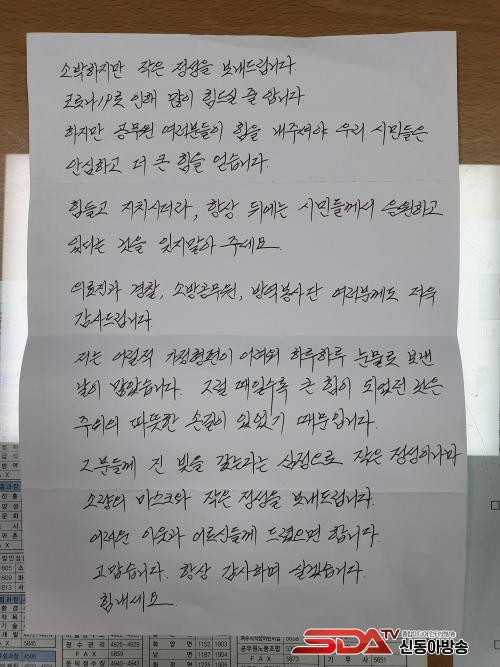 소박하지만 작은 정성을 보내드립니다.
코로나19로 인해 많이 힘드실 줄 압니다
하지만 공무원 여러분들이 힘을 내주셔야 우리 시민들은
안심하고 더 큰 힘을 얻습니다.
힘들고 지치시더라, 항상 뒤에는 시민들께서 응원하고
있다는 것을 잊지말아 주세요.
의료진과 경찰, 소방공무원, 방역봉사단 여러분께도 저욱
감사드립니다
저는 어릴적 가정형편이 어려워 하루하루 눈물로 보낸
날이 많았습니다. 그럴 때일수록 큰 힘이 되었던 것은
주위의 따뜻한 손길이 있었기 때문입니다.
그분들께 진 빚을 갚는다는 심정으로 작은 정성이나마
소량의 마스크와 작은 정성을 보내드립니다.
어려운 이웃과 어르신들께 드렸으면 합니다.
고맙습니다. 항상 감사하며 살겠습니다.
힘내세요.
SDATV
신동아방송